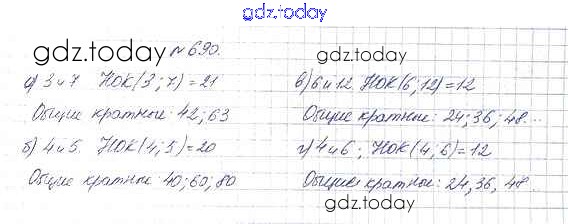 gdz.today
gdz.today №690.
а) 3 и 7 НОК(3; 7)=21
Общие кратные: 42; 63
б) 4 и 5. НОК(4; 5)=20
Общие кратные: 40; 60; 80
gdz.today
в) 6 и 12 НОК(6; 12)=12
Общие кратные: 24; 36; 48...
г) 4 и 6; НОК(4; 6)=12
Общие кратные: 24, 36, 48...
gdz.today